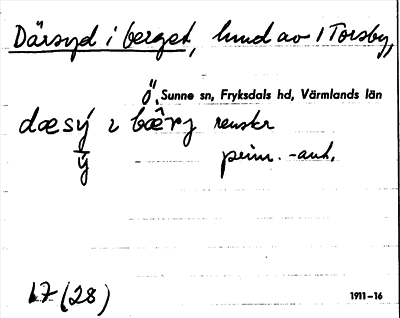 Därsyd i berget, hmd av 1 Torsby,
Ö. Sunne sn, Fryksdals hd, Värmlands län
dæsý ɩ bæ̂rj renskr
ÿ prim. -ant.
17 (28)
1911-16